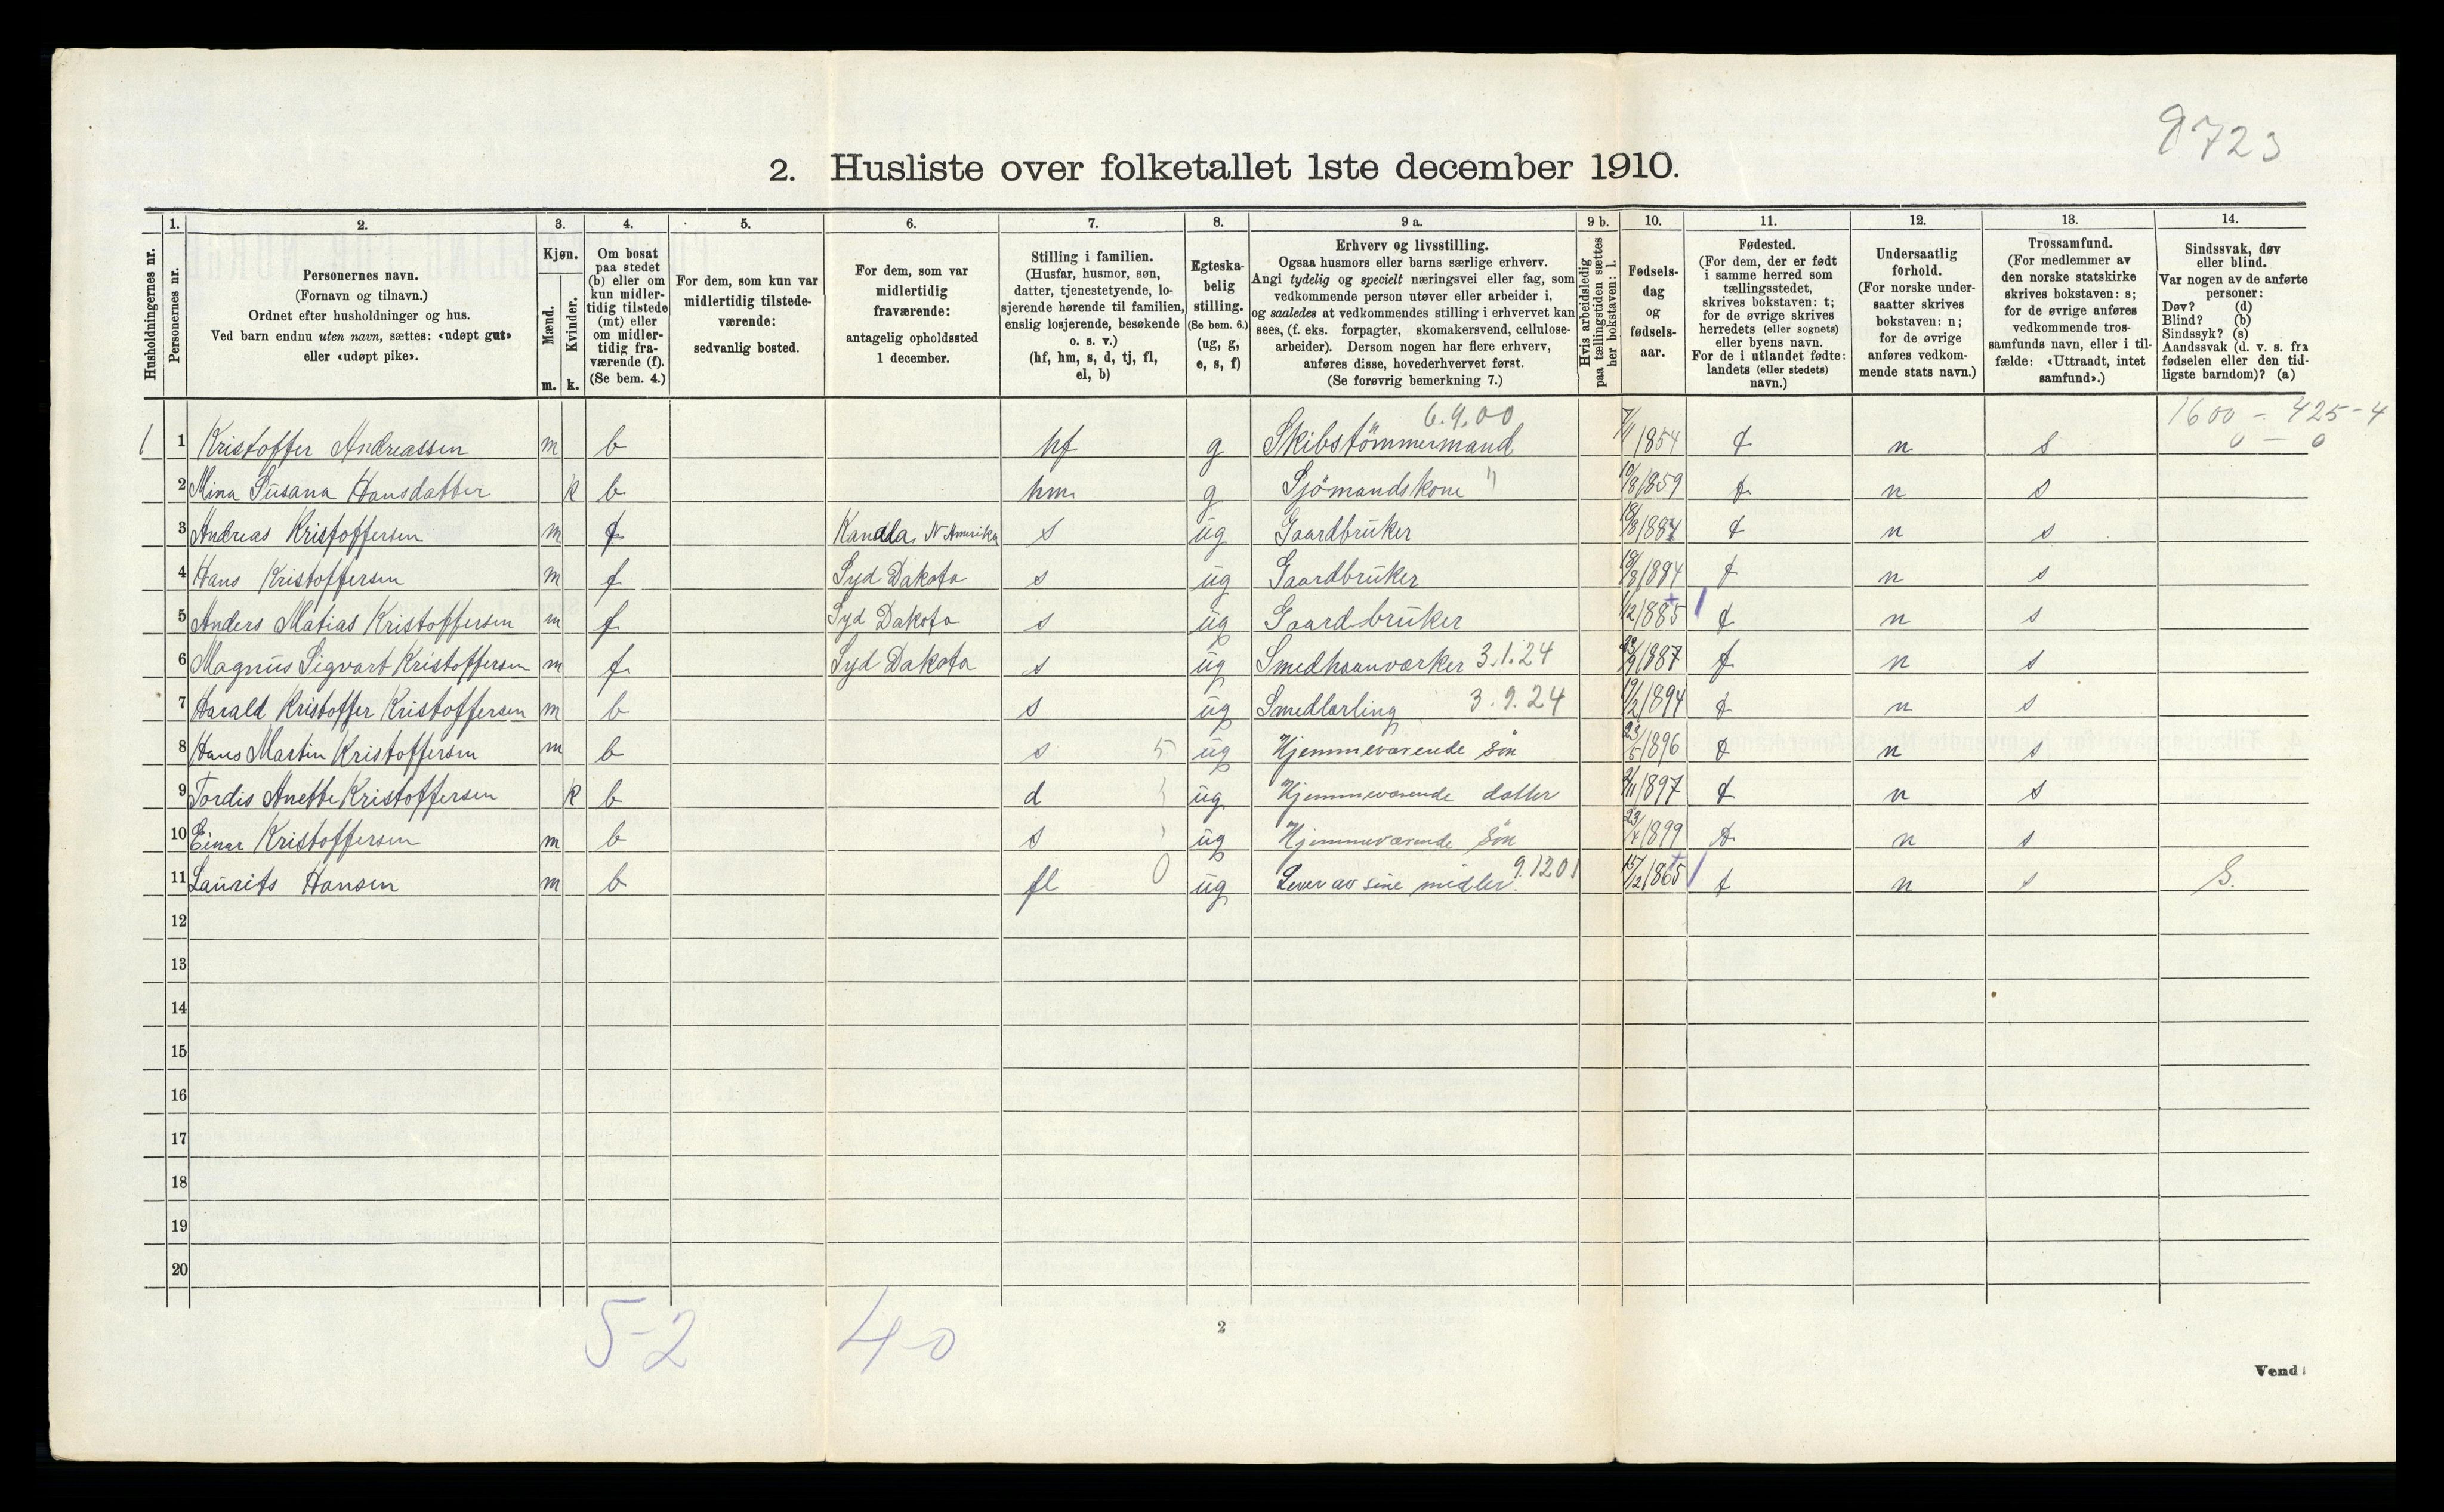 9723
2. Husliste over folketallet 1ste december 1910.
Husholdningernes nr.
1.
Personernes nr.
2.
Personernes navn.
(Fornavn og tilnavn.)
Ordnet efter husholdninger og hus.
Ved barn endnu uten navn, sættes: «udøpt gut»
eller «udøpt pike».
3.
Kjøn.
Mænd.
Kvinder.
m. k.
4.
Om bosat
paa stedet
(b) eller om
kun midler-
tidig tilstede
(mt) eller
om midler-
tidig fra-
værende (f).
(Se bem. 4.)
5.
For dem, som kun var
midlertidig tilstede-
værende:
sedvanlig bosted.
6.
For dem, som var
midlertidig
fraværende:
antagelig opholdssted
1 december.
7.
Stilling i familien.
(Husfar, husmor, søn,
datter, tjenestetyende, lo-
sjerende hørende til familien,
enslig losjerende, besøkende
o. s. v.)
(hf, hm, s, d, tj, fl,
el, b)
8.
Egteska-
belig
stilling.
(Se bem. 6.)
(ug, g,
e, s, f)
9 a.
Erhverv og livsstilling.
Ogsaa husmors eller barns særlige erhverv.
Angi tydelig og specielt næringsvei eller fag, som
vedkommende person utøver eller arbeider i,
og saaledes at vedkommendes stilling i erhvervet kan
sees, (f. eks. forpagter, skomakersvend, cellulose-
arbeider). Dersom nogen har flere erhverv,
anføres disse, hovederhvervet først.
(Se forøvrig bemerkning 7.)
9 b.
Hvis arbeidsledig
paa tællingstiden sættes
her bokstaven: l.
10.
Fødsels-
dag
og
fødsels-
aar.
11.
Fødested.
(For dem, der er født
i samme herred som
tællingsstedet,
skrives bokstaven: t;
for de øvrige skrives
herredets (eller sognets)
eller byens navn.
For de i utlandet fødte:
landets (eller stedets)
navn.)
12.
Undersaatlig
forhold.
(For norske under-
saatter skrives
bokstaven: n;
for de øvrige
anføres vedkom-
mende stats navn.)
13.
Trossamfund.
(For medlemmer av
den norske statskirke
skrives bokstaven: s;
for de øvrige anføres
vedkommende tros-
samfunds navn, eller i til-
fælde: «Uttraadt, intet
samfund».)
14.
Sindssvak, døv
eller blind.
Var nogen av de anførte
personer:
Døv? (d)
Blind? (b)
Sindssyk? (s)
Aandssvak (d. v. s. fra
fødselen eller den tid-
ligste barndom)? (a)
6.9.00 1600 - 425-4
1 1 Kristoffer Andreassen m b hf g Skibstömmermand 7/1 1854 t n s 0 - 0
2 Mina Susana Hansdatter k b hm g Sjömandskone " 10/8 1859 t n s
3 Andreas Kristoffersen m f Kanada, N Amerika s ug Gaardbruker 18/8 1881 t n s
4 Hans Kristoffersen m f Syd Dakota s ug Gaardbruker 19/8 1884 t n s
5 Anders Matias Kristoffersen m f Syd Dakota s ug Gaardbruker 1/12 1885 t n s
6 Magnus Sigvart Kristoffersen m f Syd Dakota s ug Smedhaanværker 3.1.24 23/9 1887 t n s
7 Harald Kristoffer Kristoffersen m b s ug Smedlærling 3.9.24 19/2 1894 t n s
8 Hans Martin Kristoffersen m b s 5 ug Hjemmeværende Sön 23/5 1896 t n s
9 Tordis Anette Kristoffersen k b d ug Hjemmeværende datter 2/11 1897 t n s
10 Einar Kristoffersen m b s ug Hjemmeværende Sön 23/4 1899 t n s
11 Laurits Hansen m b fl 0 ug Lever av sine midler. 9.1201 15/12 1865 t n s S.
12
13
14
15
16
17
18
19
20
52 40
2
Vend